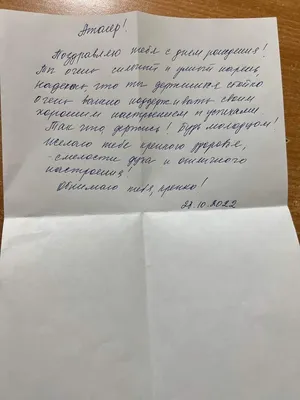 Аталер!
Поздравляю тебя с днем рождения!
Ты очень сильный и умный парень,
надеюсь, что ты держишься стойко
очень важно поддерживать своим
хорошим настроением и успехами
Так что держись! Будь молодцом!
желаю тебе крепкого здоровья,
смелости духа и отличного
настроения!
Обнимаю тебя, крепко!
27.10.2022